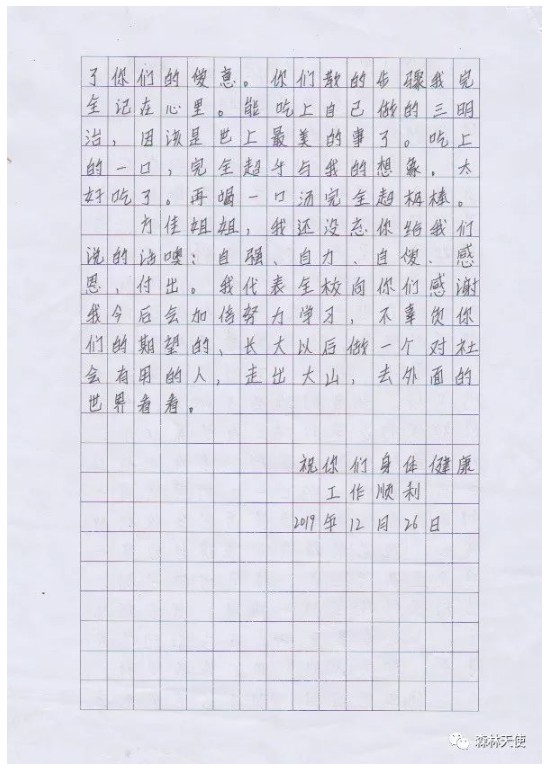 了你们的俊惠。你们散的步骤我完
全记在心里。能吃上自己做的三明
治，因该是世上最美的事了。吃上
的一口，完全超乎与我的想象。太
好吃了。再喝一口汤完全超极棒。
方佳姐姐，我还没忘你给我们
说的话噢：自强、自力、自俊、感
恩，付出。我代表全校向你们感谢
我今后会加倍努力学习，不辜负你
们的期望的，长大以后做一个对社
会有用的人，走出大山，去外面的
世界看看。
祝你们身体健康
工作顺利
2019年12月26日
森林天使